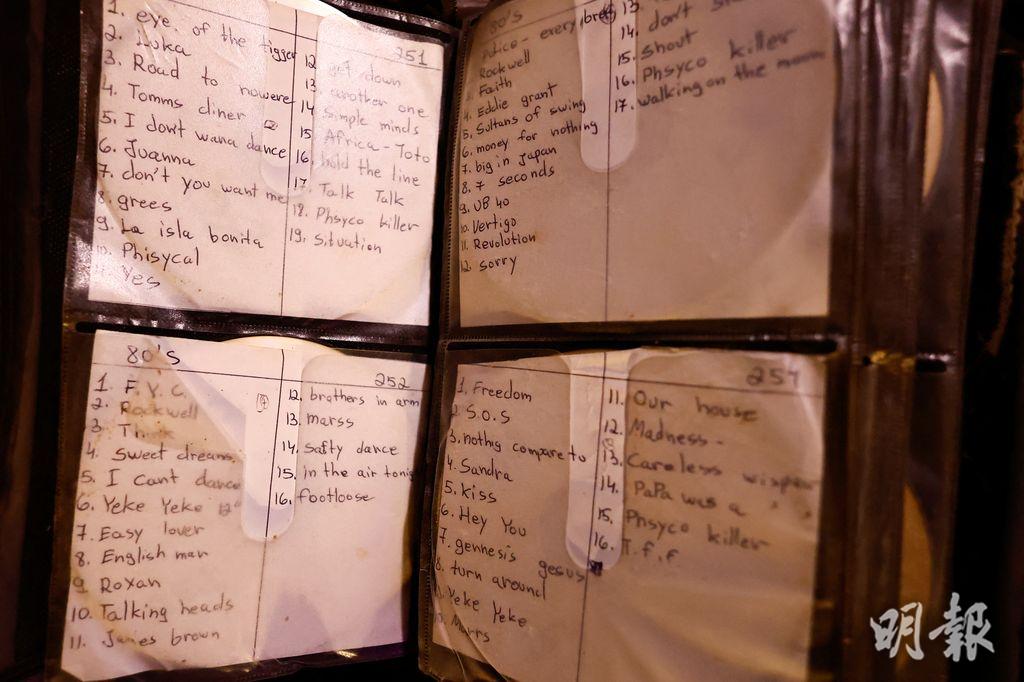 251
1. eye. of the tigger
2. Luka
3. Road to nowere
4. Tomms diner
5. I don't wana dance
6. Juanna
7. don't you want me
8. grees
9. La isla bonita
10. Phisycal
Yes
12. get down
13. another one
14. simple minds
15. Africa - Toto
16. hold the line
17. Talk Talk
18. Phsyco killer
19. situation
80's
Police - every bre
Rockwell
Faith
4. Eddie grant
5. Sultans of swing
6. money for nothing
7. big in Japan
8. 7 seconds
9. UB 40
10. Vertigo
11. Revolution
12. sorry
13.
14. don't
15. shout
16. Phsyco killer
17. walking on the moon
80's
252
1. F. Y. C.
2. Rockwell
3.
4. Sweet dreams
5. I cant dance
6. Yeke Yeke 12"
7. Easy lover
8. English man
9. Roxan
10. Talking heads
11. James brown
12. brothers in arm
13. marss
14. safty dance
15. in the air tonig
16. footloose
1. Freedom
2. S.O.S
3. nothg compare to
4. Sandra
5. kiss
6. Hey You
7. gennesis gesus
8. turn around
Yeke Yeke
Marrs
11. Our house
12. Madness -
13. Careless
14. PaPa was a
15. Phsyco killer
16. T.f.f
明報